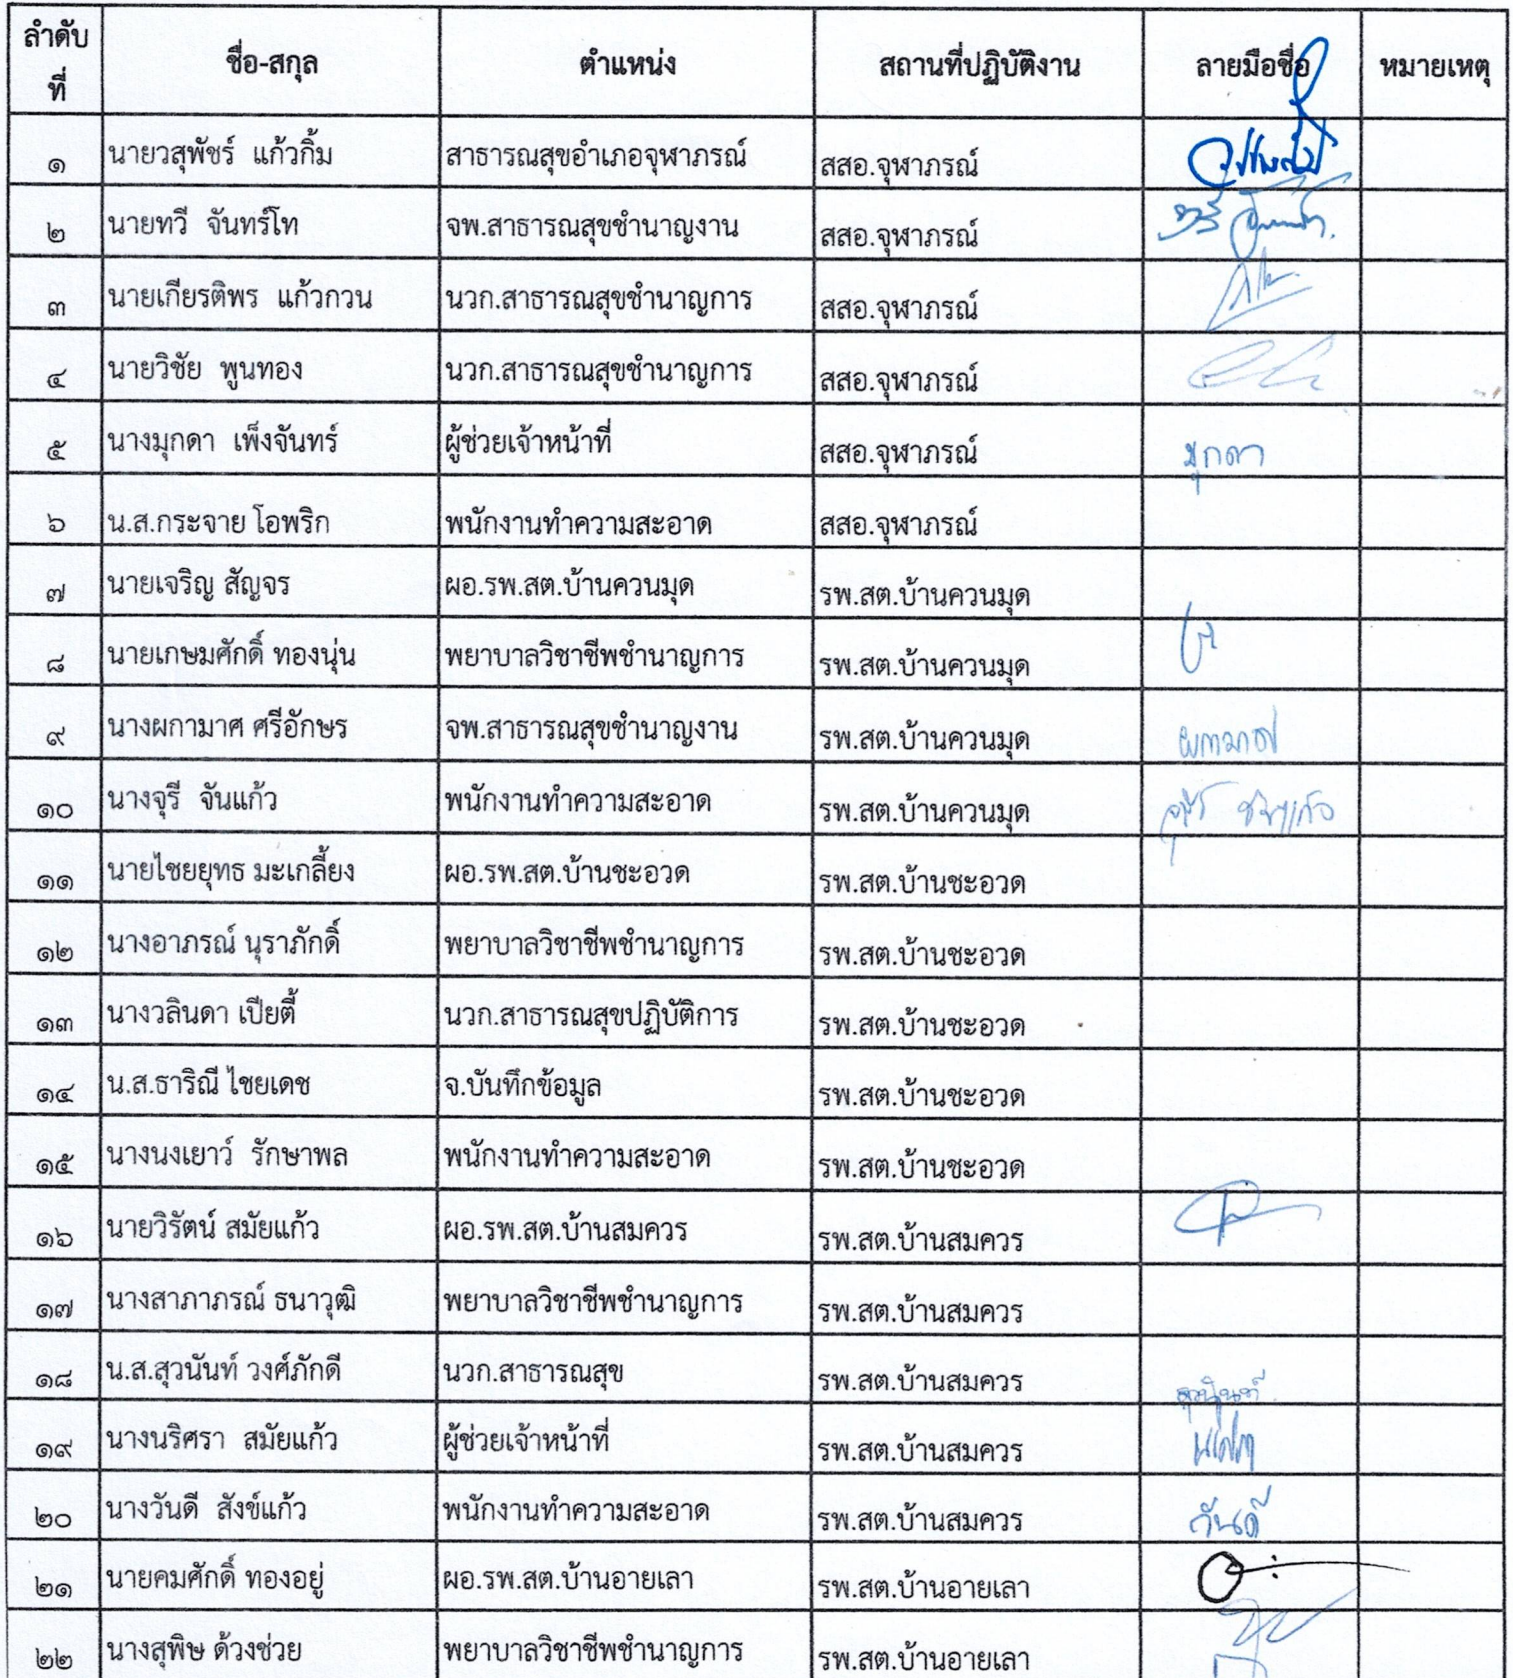 ลำดับที่ ชื่อ-สกุล ตำแหน่ง สถานที่ปฏิบัติงาน ลายมือชื่อ หมายเหตุ
๑ นายวสุพัชร์ แก้วกิ้ม สาธารณสุขอำเภอจุฬาภรณ์ สสอ.จุฬาภรณ์
๒ นายทวี จันทร์โท จพ.สาธารณสุขชำนาญงาน สสอ.จุฬาภรณ์
๓ นายเกียรติพร แก้วกวน นวก.สาธารณสุขชำนาญการ สสอ.จุฬาภรณ์
๔ นายวิชัย พูนทอง นวก.สาธารณสุขชำนาญการ สสอ.จุฬาภรณ์
๕ นางมุกดา เพ็งจันทร์ ผู้ช่วยเจ้าหน้าที่ สสอ.จุฬาภรณ์ มุกดา
๖ น.ส.กระจาย โอพริก พนักงานทำความสะอาด สสอ.จุฬาภรณ์
๗ นายเจริญ สัญจร ผอ.รพ.สต.บ้านควนมุด รพ.สต.บ้านควนมุด
๘ นายเกษมศักดิ์ ทองนุ่น พยาบาลวิชาชีพชำนาญการ รพ.สต.บ้านควนมุด
๙ นางผกามาศ ศรีอักษร จพ.สาธารณสุขชำนาญงาน รพ.สต.บ้านควนมุด ผกามาศ
๑๐ นางจุรี จันแก้ว พนักงานทำความสะอาด รพ.สต.บ้านควนมุด จุรี จันแก้ว
๑๑ นายไชยยุทธ มะเกลี้ยง ผอ.รพ.สต.บ้านชะอวด รพ.สต.บ้านชะอวด
๑๒ นางอาภรณ์ นุราภักดิ์ พยาบาลวิชาชีพชำนาญการ รพ.สต.บ้านชะอวด
๑๓ นางวลินดา เปียตี้ นวก.สาธารณสุขปฏิบัติการ รพ.สต.บ้านชะอวด
๑๔ น.ส.ธาริณี ไชยเดช จ.บันทึกข้อมูล รพ.สต.บ้านชะอวด
๑๕ นางนงเยาว์ รักษาพล พนักงานทำความสะอาด รพ.สต.บ้านชะอวด
๑๖ นายวิรัตน์ สมัยแก้ว ผอ.รพ.สต.บ้านสมควร รพ.สต.บ้านสมควร
๑๗ นางสาภาภรณ์ ธนาวุฒิ พยาบาลวิชาชีพชำนาญการ รพ.สต.บ้านสมควร
๑๘ น.ส.สุวนันท์ วงศ์ภักดี นวก.สาธารณสุข รพ.สต.บ้านสมควร สุวนันท์
๑๙ นางนริศรา สมัยแก้ว ผู้ช่วยเจ้าหน้าที่ รพ.สต.บ้านสมควร
๒๐ นางวันดี สังข์แก้ว พนักงานทำความสะอาด รพ.สต.บ้านสมควร วันดี
๒๑ นายคมศักดิ์ ทองอยู่ ผอ.รพ.สต.บ้านอายเลา รพ.สต.บ้านอายเลา
๒๒ นางสุพิษ ด้วงช่วย พยาบาลวิชาชีพชำนาญการ รพ.สต.บ้านอายเลา